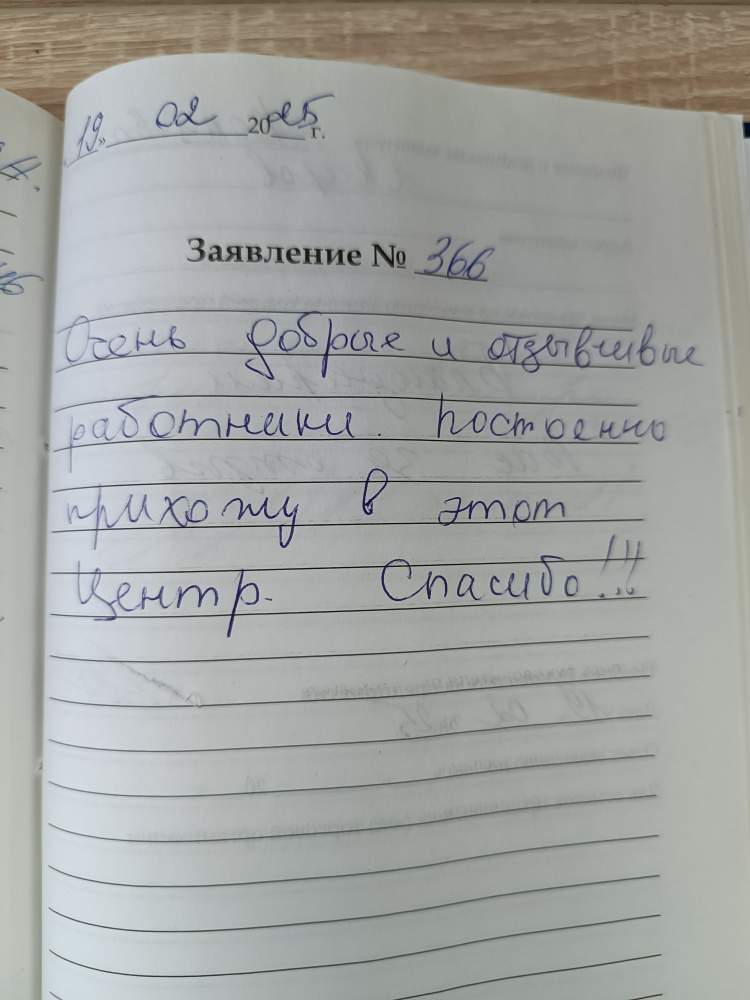 „19" 02 2025 г.
Заявление № 366
Очень добрые и отзывчивые
работники. Постоенно
прихожу в этот
Центр. Спасибо!!!
19 02 25